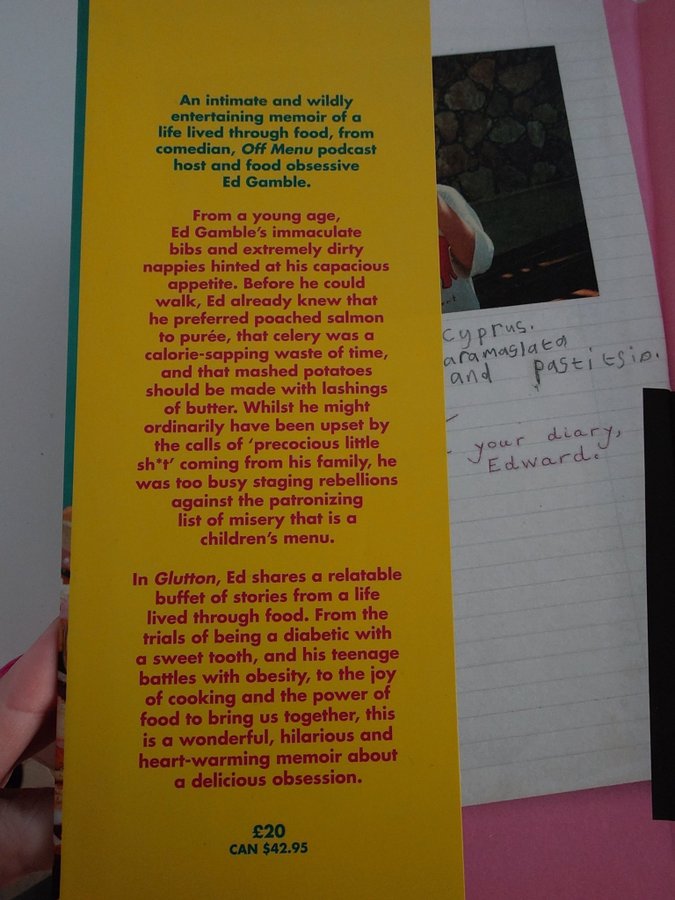 An intimate and wildly
entertaining memoir of a
life lived through food, from
comedian, Off Menu podcast
host and food obsessive
Ed Gamble.
From a young age,
Ed Gamble's immaculate
bibs and extremely dirty
nappies hinted at his capacious
appetite. Before he could
walk, Ed already knew that
he preferred poached salmon
to purée, that celery was a
calorie-sapping waste of time,
and that mashed potatoes
should be made with lashings
of butter. Whilst he might
ordinarily have been upset by
the calls of 'precocious little
sh*t' coming from his family, he
was too busy staging rebellions
against the patronizing
list of misery that is a
children's menu.
In Glutton, Ed shares a relatable
buffet of stories from a life
lived through food. From the
trials of being a diabetic with
a sweet tooth, and his teenage
battles with obesity, to the joy
of cooking and the power of
food to bring us together, this
is a wonderful, hilarious and
heart-warming memoir about
a delicious obsession.
£20
CAN $42.95
cyprus.
aramaslata
and pastitsio.
your diary,
Edward.